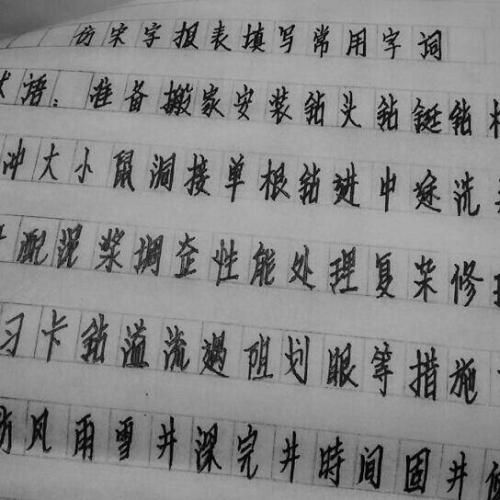 仿宋字报表填写常用字词
术语：准备搬家安装钻头钻铤钻
冲大小鼠洞接单根钻进中途洗
配泥浆调整性能处理复杂修
卡钻溢流遇阻划眼等措施
防风雨雪井深完井時间固井